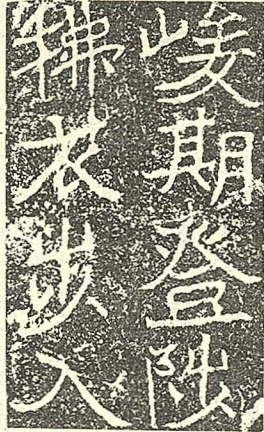 峻期登陟
拂衣步入